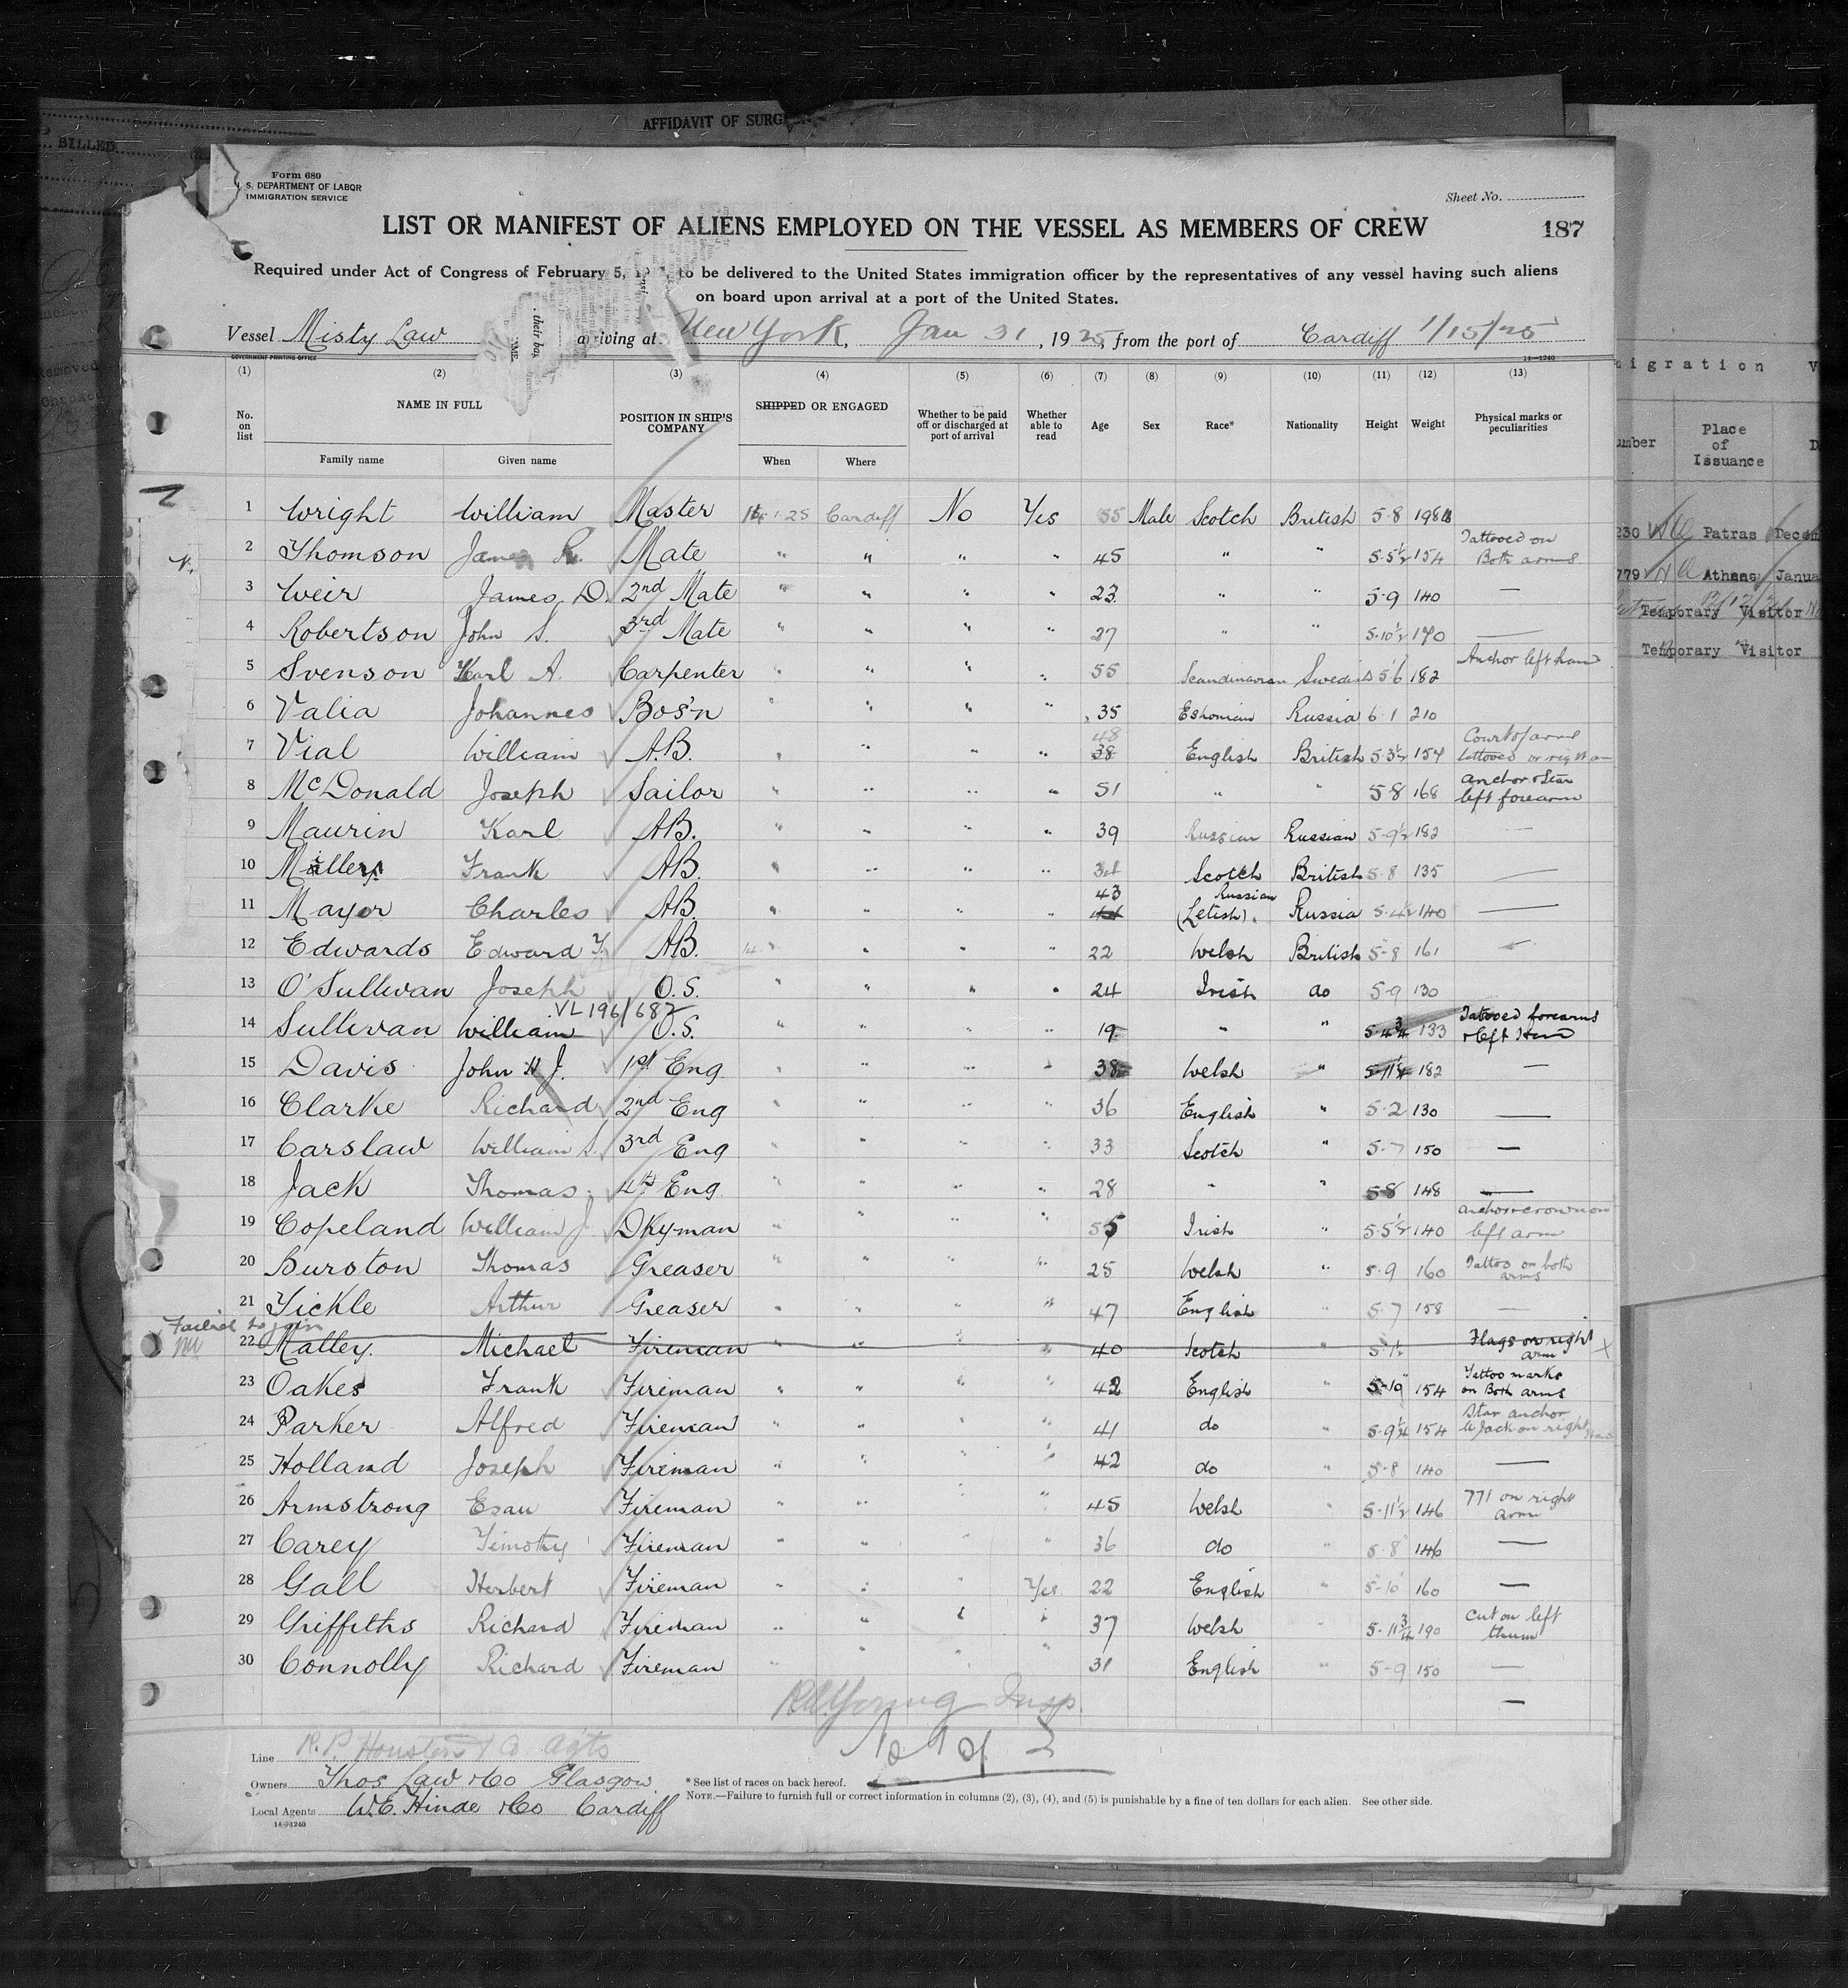 AFFIDAVIT OF SURG
BILLED
Form 680
S. DEPARTMENT OF LABOR
IMMIGRATION SERVICE
Sheet No.
LIST OR MANIFEST OF ALIENS EMPLOYED ON THE VESSEL AS MEMBERS OF CREW
187
Required under Act of Congress of February 5, to be delivered to the United States immigration officer by the representatives of any vessel having such aliens
on board upon arrival at a port of the United States.
Vessel Misty Law arriving at New York, Jan 31, 1925, from the port of Cardiff 1/15/25
GOVERNMENT PRINTING OFFICE 14—1240
(1) (2) (3) (4) (5) (6) (7) (8) (9) (10) (11) (12) (13)
No. on list NAME IN FULL POSITION IN SHIP'S COMPANY SHIPPED OR ENGAGED Whether to be paid off or discharged at port of arrival Whether able to read Age Sex Race* Nationality Height Weight Physical marks or peculiarities
Family name Given name When Where
1 Wright William Master 1.25 Cardiff No Yes 55 Male Scotch British 5-8 198
2 Thomson James R. Mate " " " " 45 " " 5-5½ 154 Tattooed on Both arms
3 Weir James D. 2nd Mate " " " " 23 " " 5-9 140 —
4 Robertson John S. 3rd Mate " " " " 27 " " 5-10½ 170 —
5 Svenson Karl A. Carpenter " " " " 55 Scandinavian Swedish 5-6 182 Anchor left hand
6 Valia Johannes Bos'n " " " " 35 Eshonian Russia 6-1 210
7 Vial William A.B. " " " " 38 48 English British 5-3½ 154 Court of arms tattooed on right arm
8 McDonald Joseph Sailor " " " " 51 " " 5-8 168 anchor & Star left forearm
9 Maurin Karl AB. " " " " 39 Russian Russian 5-9½ 182 —
10 Millers Frank AB. " " " " 34 Scotch British 5-8 135 —
11 Mayor Charles AB. " " " " 43 Russian (Letish). Russia 5-4½ 140 —
12 Edwards Edward T. AB. 14 " " " " 22 Welsh British 5-8 161 —
13 O'Sullivan Joseph O.S. " " " " 24 Irish do 5-9 130
VL 196/687
14 Sullivan William O.S. " " " " 19 " " 5-4¾ 133 Tatooed forearms & left Hand
15 Davis John H J. 1st Eng " " " " 38 Welsh " 5-11¼ 182 —
16 Clarke Richard 2nd Eng " " " " 36 English " 5-2 130 —
17 Carslaw William S. 3rd Eng " " " " 33 Scotch " 5-7 150 —
18 Jack Thomas 4th Eng " " " " 28 " " 5-8 148 —
19 Copeland William J. DKyman " " " " 55 Irish " 5-5½ 140 anchor & crown on left arm
20 Burston Thomas Greaser " " " " 25 Welsh " 5-9 160 Tattoo on both arms
21 Tickle Arthur Greaser " " " " 47 English " 5-7 158 —
Failed to join
22 Malley. Michael Fireman " " " " 40 Scotch " 5-1½ Flags on right arm X
23 Oakes Frank Fireman " " " " 42 English " 5-10 154 Tattoo marks on Both arms
24 Parker Alfred Fireman " " " " 41 do " 5-9¼ 154 Star anchor & Jack on right
25 Holland Joseph Fireman " " " " 42 do " 5-8 140 —
26 Armstrong Esau Fireman " " " " 45 Welsh " 5-11½ 146 771 on right arm
27 Carey Timothy Fireman " " " " 36 do " 5-8 146 —
28 Gall Herbert Fireman " " " Yes 22 English " 5-10 160 —
29 Griffiths Richard Fireman " " " " 37 Welsh " 5-11¾ 190 Cut on left thum
30 Connolly Richard Fireman " " " 31 English " 5-9 150 —
Young Insp. —
Line R.P. Houston & Co Agts
No 1 of 2
Owners Thos Law & Co Glasgow
* See list of races on back hereof.
Local Agents W.E. Hinde & Co Cardiff
NOTE.—Failure to furnish full or correct information in columns (2), (3), (4), and (5) is punishable by a fine of ten dollars for each alien. See other side.
14—1240
igration V
umber Place of Issuance D
230 Patras Decem
779 Athens Janua
Temporary Visitor
Temporary Visitor